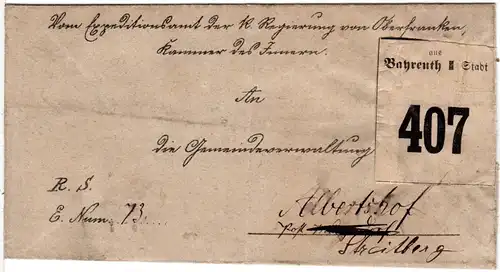 Vom Expeditionsamt der K. Regierung von Oberfranken,
Kammer des Innern.
aus
Bayreuth II Stadt
407
An
die Gemeindeverwaltung
R. S.
E. Num. 73
Albertshof
Post
Streitberg